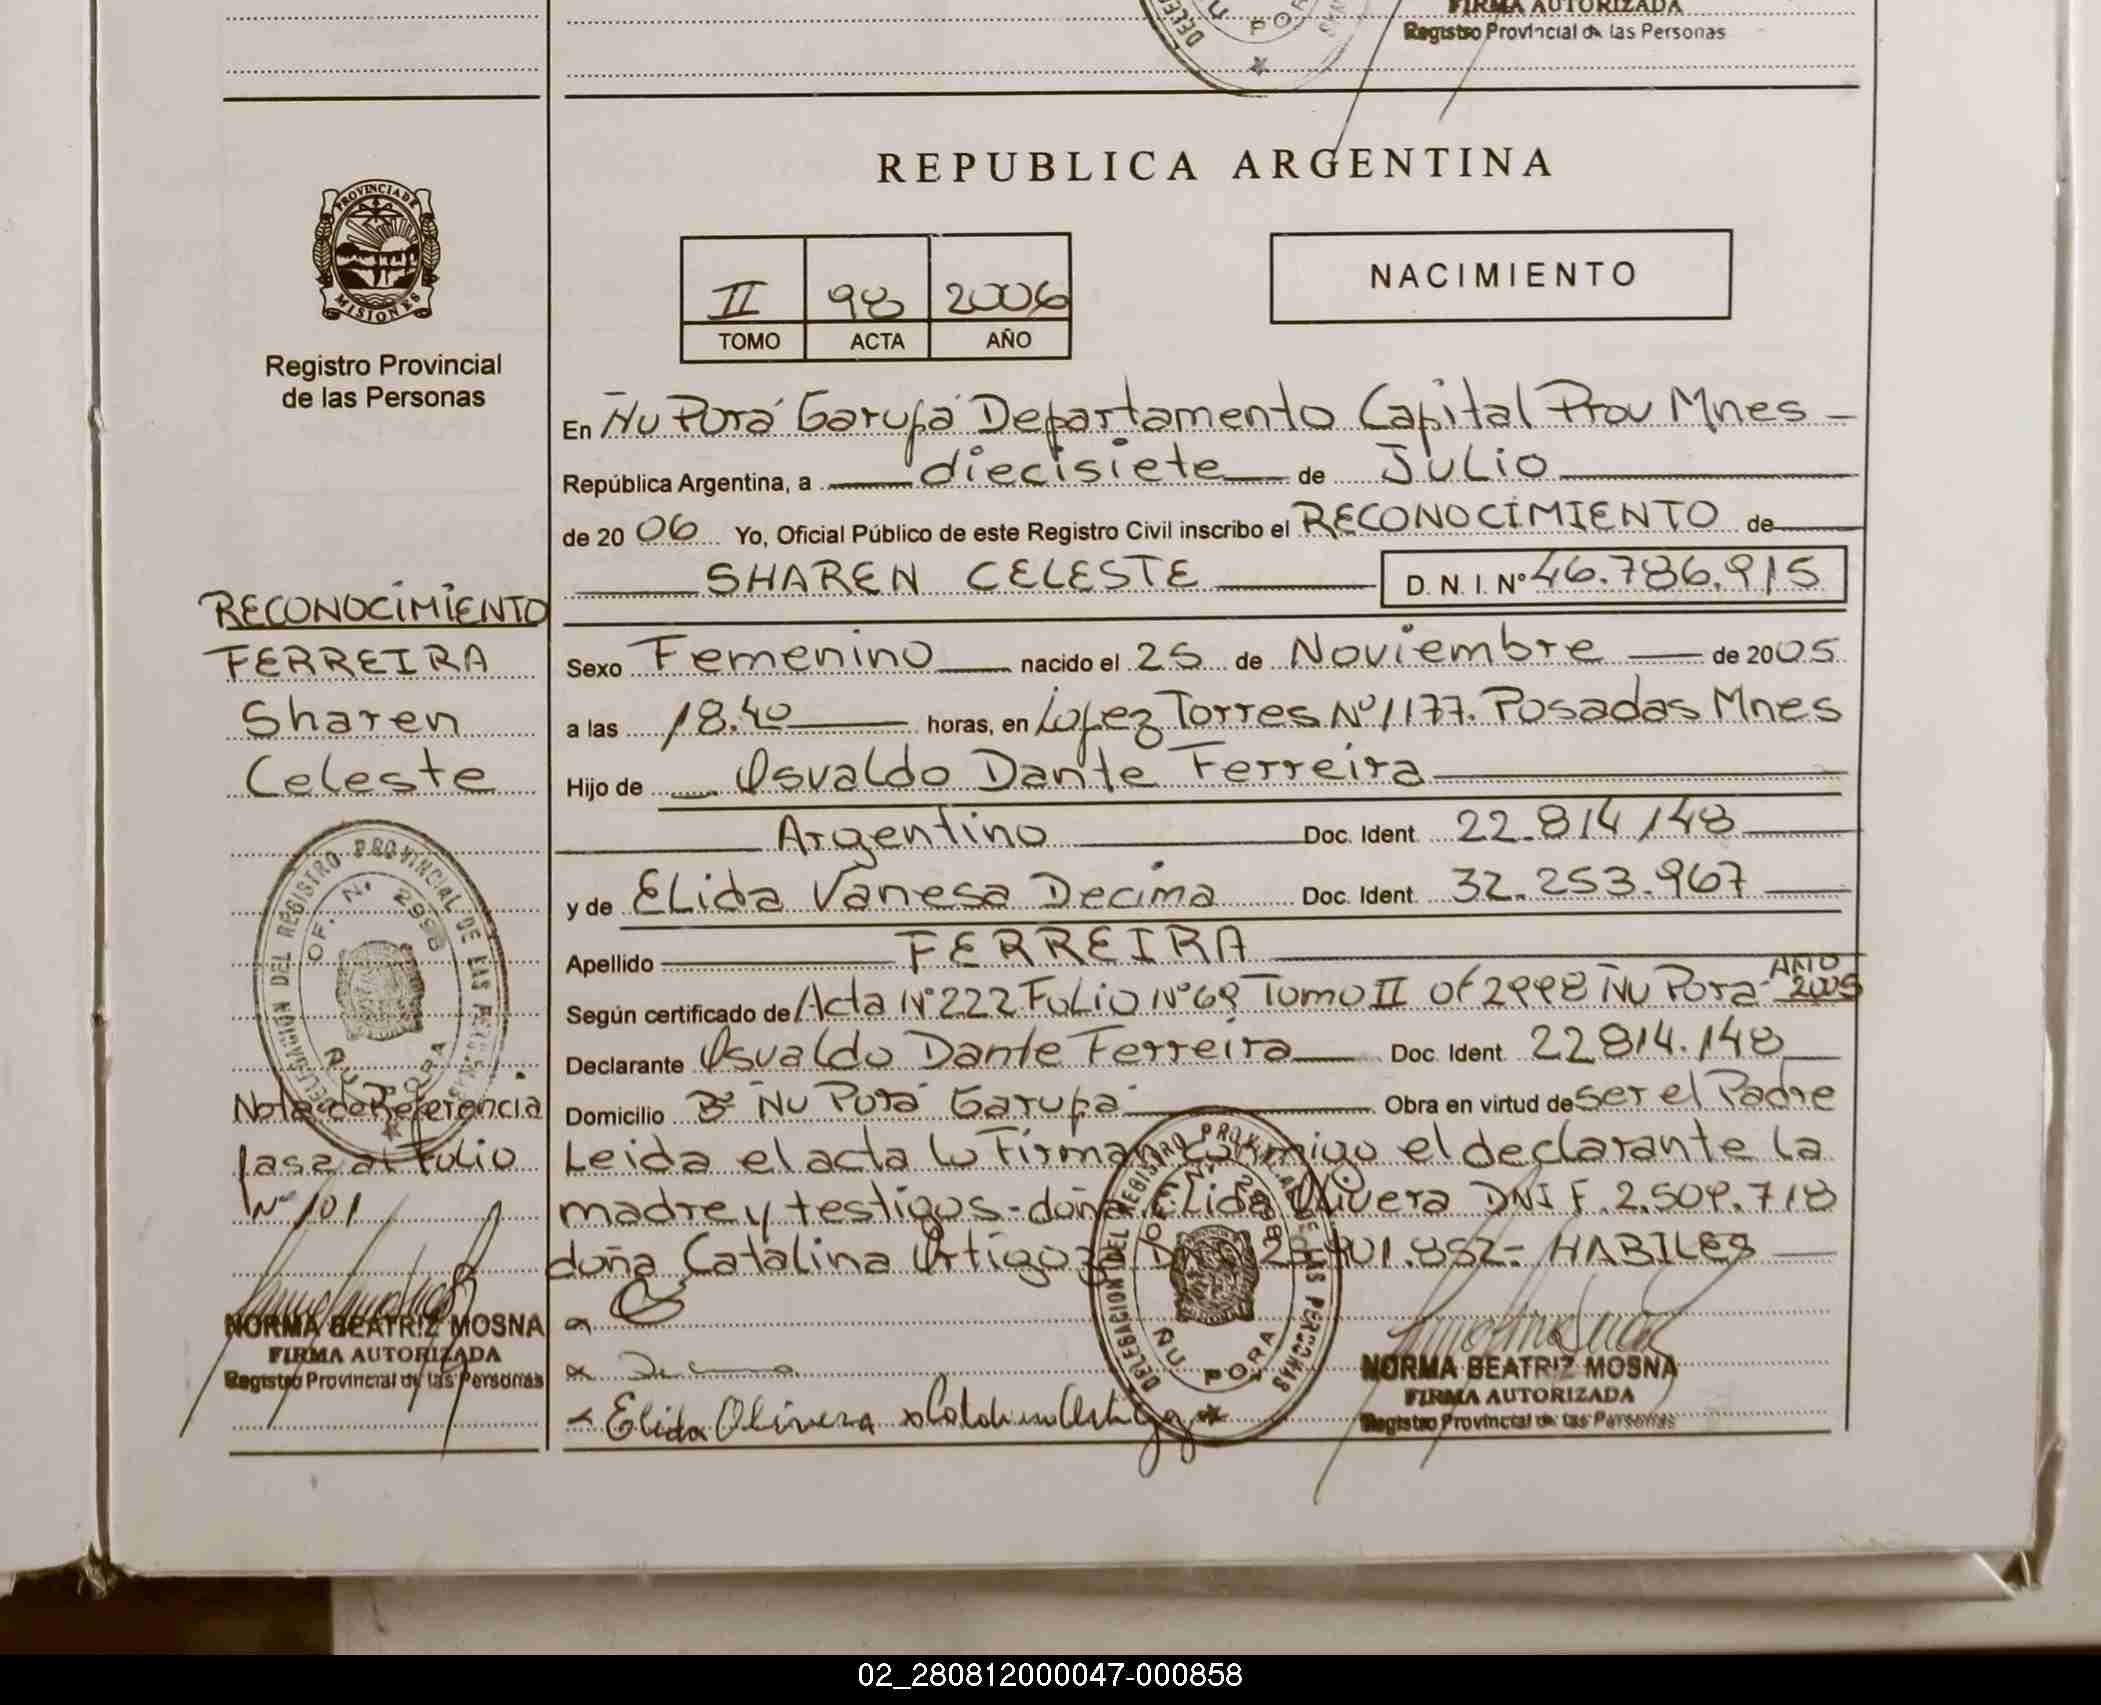 FIRMA AUTORIZADA
Registro Provincial de las Personas
PROVINCIA DE
MISIONES
Registro Provincial
de las Personas
REPUBLICA ARGENTINA
II 98 2006
TOMO ACTA AÑO
NACIMIENTO
En Ñu Porá Garupá Departamento Capital Prov Mnes
República Argentina, a diecisiete de Julio
de 2006 Yo, Oficial Público de este Registro Civil inscribo el RECONOCIMIENTO de
SHAREN CELESTE D. N. I. Nº 46.786.915
Sexo Femenino nacido el 25 de Noviembre de 2005
a las 18.40 horas, en López Torres Nº 1177. Posadas Mnes
Hijo de Osvaldo Dante Ferreira
Argentino Doc. Ident. 22.814.148
y de Elida Vanesa Decima Doc. Ident. 32.253.967
Apellido FERREIRA
Según certificado de Acta Nº 222 Folio Nº 69 Tomo II Of 2998 Ñu Porá AÑO 2005
Declarante Osvaldo Dante Ferreira Doc. Ident. 22814.148
Domicilio Bº Ñu Porá Garupá Obra en virtud de ser el Padre
Leida el acta lo Firman conmigo el declarante la
madre y testigos - doña Elida Olivera DNI F. 2.509.718
doña Catalina Ortigoza HABILES
Elida Olivera
RECONOCIMIENTO
FERREIRA
Sharen
Celeste
DELEGACION DEL REGISTRO PROVINCIAL DE LAS PERSONAS
OF. N. 2998
ÑU PORA
Nota de Referencia
pasa al Folio
Nº 101
NORMA BEATRIZ MOSNA
FIRMA AUTORIZADA
Registro Provincial de las Personas
DELEGACION DEL REGISTRO PROVINCIAL DE LAS PERSONAS
OF. N. 2998
ÑU PORA
NORMA BEATRIZ MOSNA
FIRMA AUTORIZADA
Registro Provincial de las Personas
02_280812000047-000858